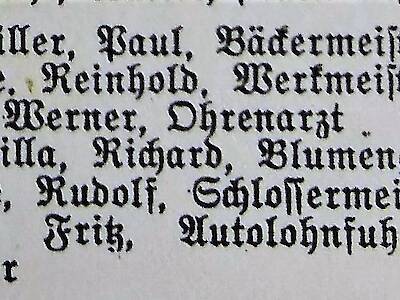 iller, Paul, Bäckermeiſt
e, Reinhold, Werkmeiſt
Werner, Ohrenarzt
illa, Richard, Blumen
, Rudolf, Schloſſermei
Fritz, Autolohnfuh
r